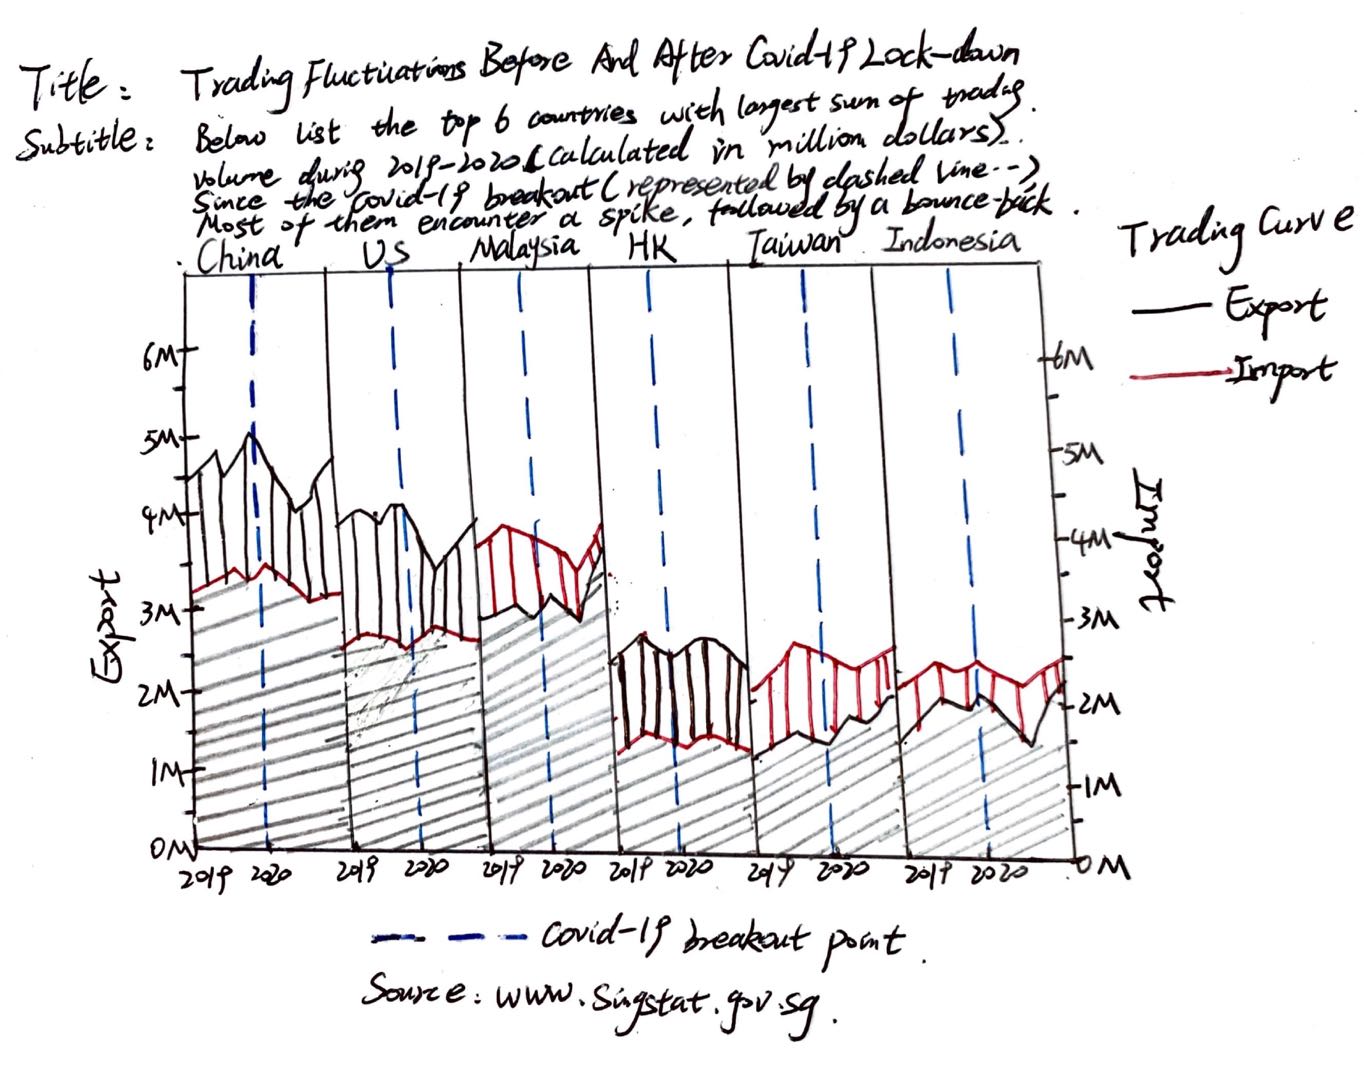 Title: Trading Fluctuations Before And After Covid-19 Lock-down
Subtitle: Below list the top 6 countries with largest sum of trading.
volume during 2019-2020 (calculated in million dollars).
Since the Covid-19 breakout (represented by dashed line --)
Most of them encounter a spike, followed by a bounce-back.
China US Malaysia HK Taiwan Indonesia
Trading Curve
Export
Import
6M
5M
4M
3M
2M
1M
0M
Export
6M
5M
4M
3M
2M
1M
0M
Import
2019 2020 2019 2020 2019 2020 2019 2020 2019 2020 2019 2020
Covid-19 breakout point.
Source: www.singstat.gov.sg.